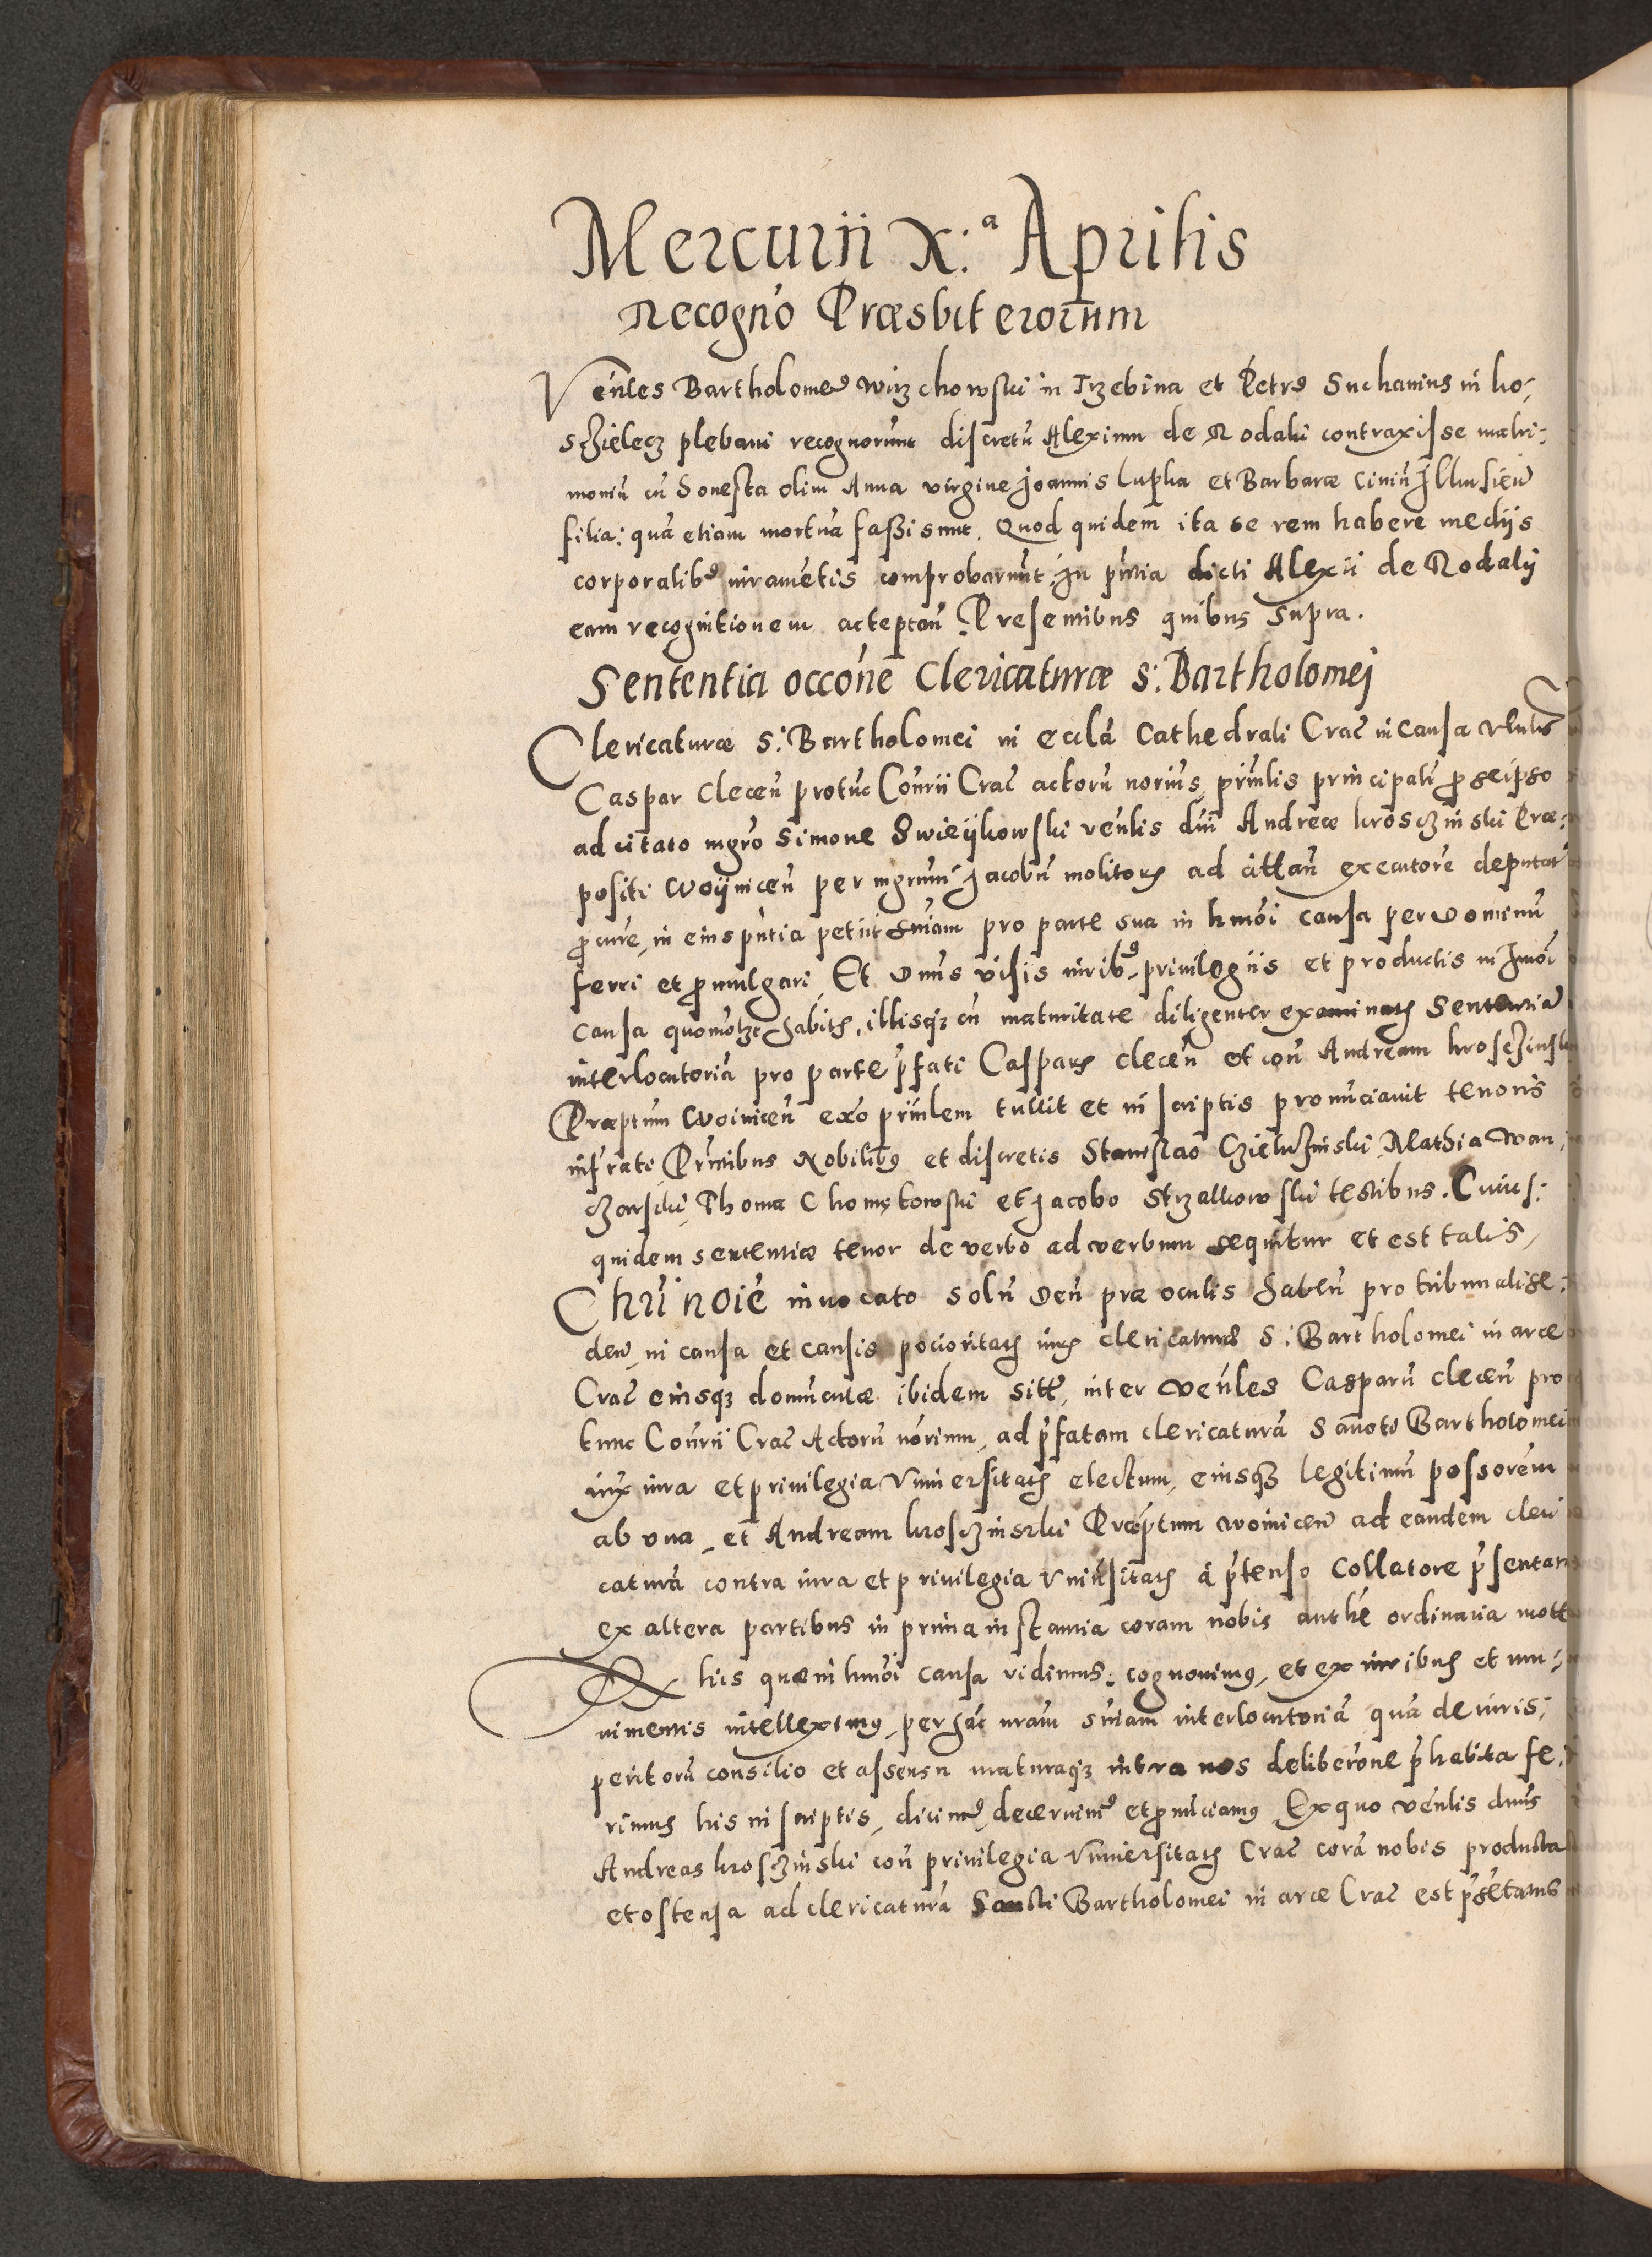 Mercurii x:ª Aprilis
Recogno Præsbiterorum
Venles Bartholomeꝰ Wirzchowski in Trzebina et Petrꝰ Suchanius in ko-
szielecz plebani recognorunt discretũ Alexium de Rodaki contraxisse matri-
moniũ cũ honesta olim Anna virgine Joannis Lupka et Barbaræ civiũ Ilkusieñ
filia: quã etiam mortuã fassi sunt. Quod quidem ita se rem habere mediis
corporalibꝰ iuramẽtis comprobarunt. In pñtia dicti Alexii de Rodaly
eam recognitionem acceptañ Presentibus quibus supra.
Sententia occõne Clericaturæ S: Bartholomej
Clericaturæ S: Bartholomei in eccla Cathedrali Crac in causa Venlis
Caspar Cleceñ protũc Consrii Crac actorũ norius, prinlis principalr ꝓ seipso
ad citato mgro Simone Swieijkowski venlis dni Andreæ Kroszinski Præ-
positi Woijniceñ per mgrum Jacobũ molitoris ad cittañ executorẽ deputat
ꝓcure, in eius pñtia petiit sniam pro parte sua in hmõi causa per Dominũ
ferri et ꝓmulgari Et Dnus visis iuribꝰ, privilegiis et productis in hmõi
causa quomõlzt habitis, illisqꝫ cũ maturitate diligenter examinatis Sententiã
interlocutoriã pro parte pfati Casparis cleceñ et coñ Andream Kroszinsk
Præptum Woiniceñ exo prinlem tullit et in scriptis pronũciavit tenoris
infrati Prñtibus Nobilibꝰ et discretis Stanislao Czielusinski, Mathia Wan-
Thoma Chometowski et Jacobo Strzalkowski testibus. Cuius-
quidem sententiæ tenor de verbo ad verbum sequitur et est talis,
Chri noie invocato solũ Deũ præ oculis habeñ pro tribunali se-
deñ, in causa et causis pocioritatis iuris clericaturæ S: Bartholomei in arce
Crac eiusqꝫ domũculæ ibidem sittæ, inter Venles Casparũ cleceñ pro
tunc Conrii Crac Actorũ norium, ad pfatam clericaturã Sancti Bartholomei
iux iura et privilegia Universitatis electum, eiusqꝫ legitimũ possorem
ab una, et Andream Kroszinski Præptum woiniceñ ad eandem cleri
caturã contra iura et privilegia Univsitatis á ptenso Collatore psentatũ
ex altera partibus in prima instantia coram nobis authẽ ordinaria mott
Ex his quæ in hmõi causa vidimus, cognovimꝰ, et ex iuribus et mu-
nimentis intelleximꝰ, per hac nram sniam interlocutoriã quã de iuris-
peritorũ consilio et assensu maturaqꝫ intra nos deliberõne phabita fe-
rimus his in scriptis, dicimꝰ, decernimꝰ et ꝓnũciamꝰ Ex quo venlis dnus
Andreas Kroszinski coñ privilegia Universitatis Crac corã nobis producta
et ostensa ad clericaturã Sancti Bartholomei in arce Crac est psẽtatus